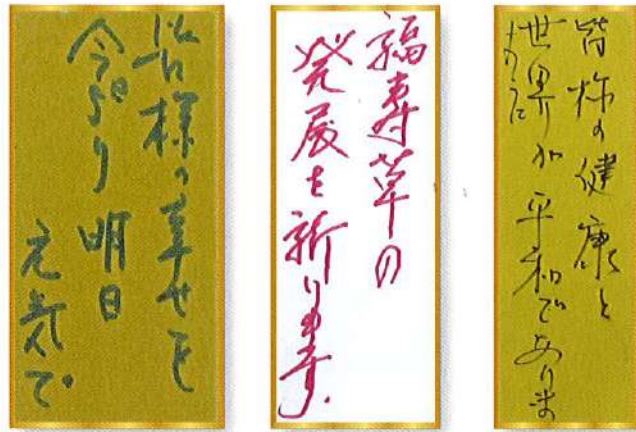 皆様の幸せを
今日より明日
元気で
福寿草の
発展を祈ります。
皆様の健康と
世界が平和でありま
すように